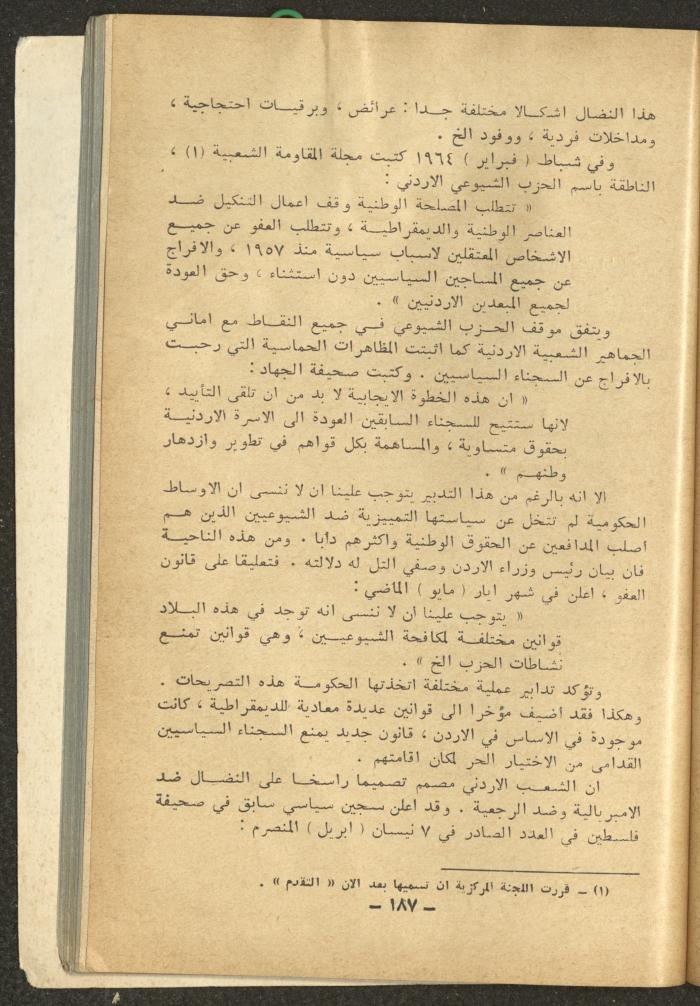 هذا النضال اشكالا مختلفة جدا : عرائض ، وبرقيات احتجاجية ،
ومداخلات فردية ، ووفود الخ .
وفي شباط ( فبراير ) ١٩٦٤ كتبت مجلة المقاومة الشعبية (١) ،
الناطقة باسم الحزب الشيوعي الاردني :
« تتطلب المصلحة الوطنية وقف اعمال التنكيل ضد
العناصر الوطنية والديمقراطية ، وتتطلب العفو عن جميع
الاشخاص المعتقلين لاسباب سياسية منذ ١٩٥٧ ، والافراج
عن جميع المساجين السياسيين دون استثناء ، وحق العودة
لجميع المبعدين الاردنيين » .
ويتفق موقف الحزب الشيوعي في جميع النقاط مع اماني
الجماهير الشعبية الاردنية كما اثبتت المظاهرات الحماسية التي رحبت
بالافراج عن السجناء السياسيين . وكتبت صحيفة الجهاد :
« ان هذه الخطوة الايجابية لا بد من ان تلقى التأييد ،
لانها ستتيح للسجناء السابقين العودة الى الاسرة الاردنية
بحقوق متساوية ، والمساهمة بكل قواهم في تطوير وازدهار
وطنهم » .
الا انه بالرغم من هذا التدبير يتوجب علينا ان لا ننسى ان الاوساط
الحكومية لم تتخل عن سياستها التمييزية ضد الشيوعيين الذين هم
اصلب المدافعين عن الحقوق الوطنية واكثرهم دابا . ومن هذه الناحية
فان بيان رئيس وزراء الاردن وصفي التل له دلالته . فتعليقا على قانون
العفو ، اعلن في شهر ايار ( مايو ) الماضي :
« يتوجب علينا ان لا ننسى انه توجد في هذه البلاد
قوانين مختلفة لمكافحة الشيوعيين ، وهي قوانين تمنع
نشاطات الحزب الخ » .
وتؤكد تدابير عملية مختلفة اتخذتها الحكومة هذه التصريحات .
وهكذا فقد اضيف مؤخرا الى قوانين عديدة معادية للديمقراطية ، كانت
موجودة في الاساس في الاردن ، قانون جديد يمنع السجناء السياسيين
القدامى من الاختيار الحر لمكان اقامتهم .
ان الشعب الاردني مصمم تصميما راسخا على النضال ضد
الامبريالية وضد الرجعية . وقد اعلن سجين سياسي سابق في صحيفة
فلسطين في العدد الصادر في ٧ نيسان ( ابريل ) المنصرم :
(١) – قررت اللجنة المركزية ان تسميها بعد الان « التقدم » .
– ١٨٧ –